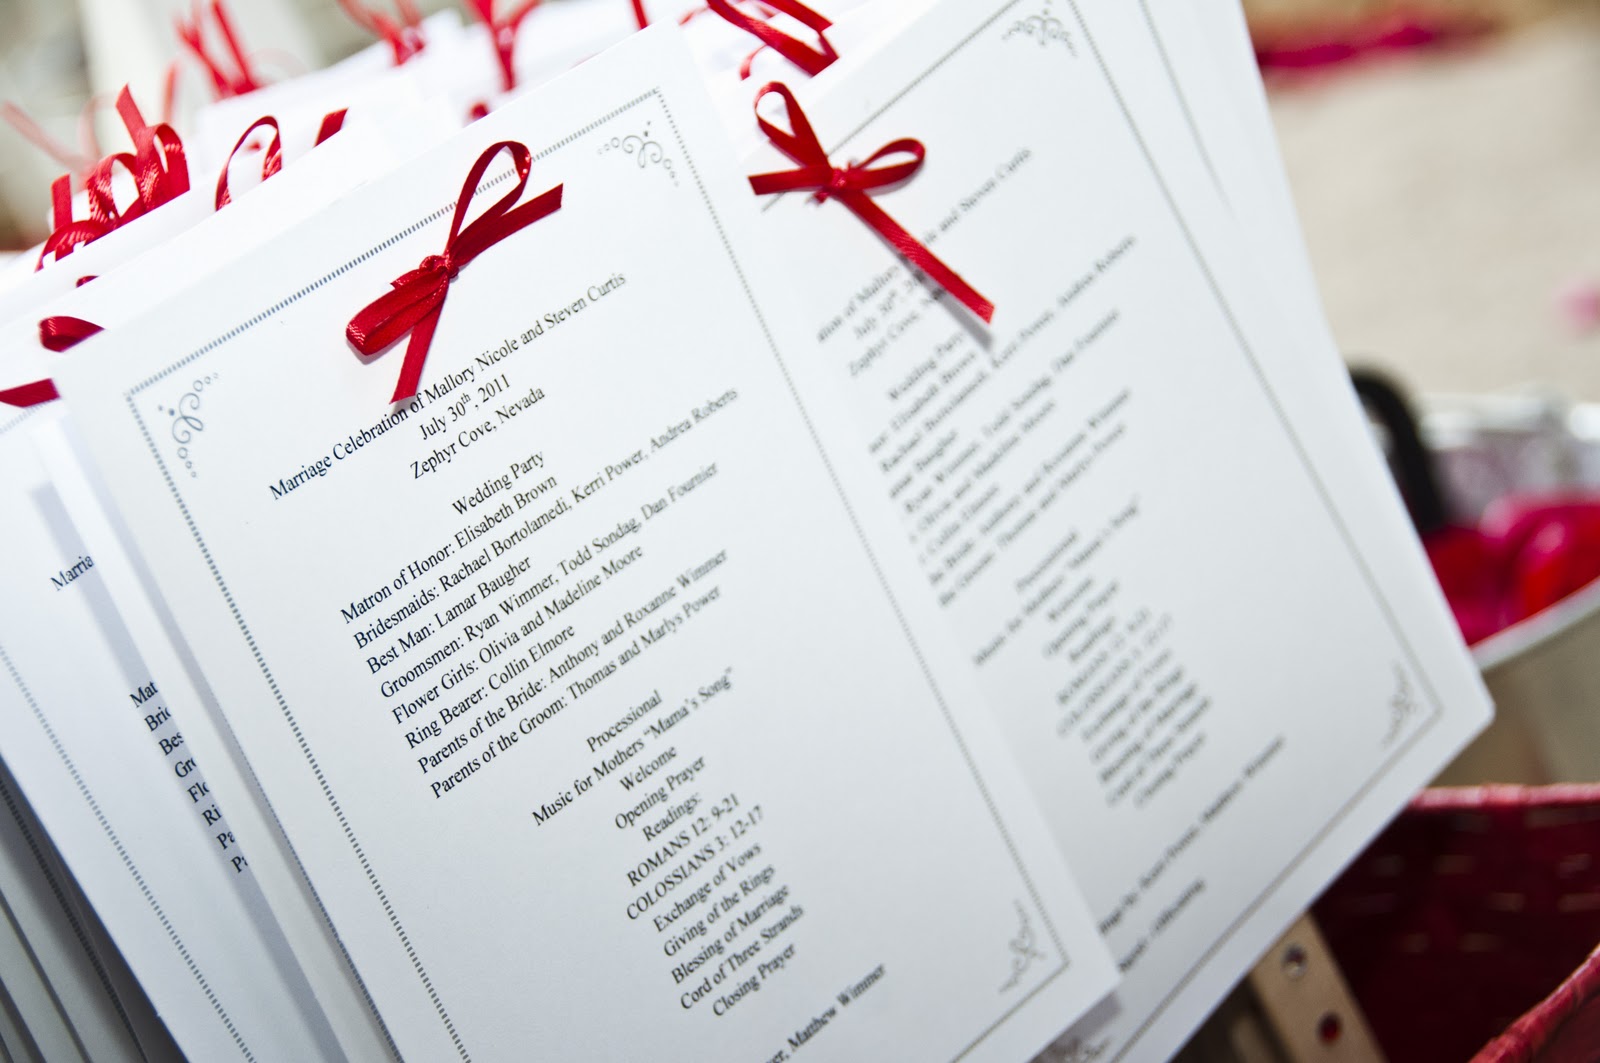 Marriage Celebration of Mallory Nicole and Steven Curtis
July 30th, 2011
Zephyr Cove, Nevada
Wedding Party
Matron of Honor: Elisabeth Brown
Bridesmaids: Rachael Bortolamedi, Kerri Power, Andrea Roberts
Best Man: Lamar Baugher
Groomsmen: Ryan Wimmer, Todd Sondag, Dan Fournier
Flower Girls: Olivia and Madeline Moore
Ring Bearer: Collin Elmore
Parents of the Bride: Anthony and Roxanne Wimmer
Parents of the Groom: Thomas and Marlys Power
Processional
Music for Mothers "Mama's Song"
Welcome
Opening Prayer
Readings:
ROMANS 12: 9-21
COLOSSIANS 3: 12-17
Exchange of Vows
Giving of the Rings
Blessing of Marriage
Cord of Three Strands
Closing Prayer
Matthew Wimmer
Marria
Mat
Bri
Bes
Gro
Flo
Ri
Pa
Pa
ation of Mallory
le and Steven Curtis
July 30th, 2
Zephyr Cove, N
Wedding Party
Elisabeth Brown
Rachael Bortolamedi, Kerri Power, Andrea Roberts
Lamar Baugher
Ryan Wimmer, Todd Sondag, Dan Fournier
Olivia and Madeline Moore
Collin Elmore
the Bride: Anthony and Roxanne Wimmer
the Groom: Thomas and Marlys Power
Processional
Music for Mothers "Mama's Song"
Welcome
Opening Prayer
Readings:
ROMANS 12: 9-21
COLOSSIANS 3: 12-17
Exchange of Vows
Giving of the Rings
Blessing of Marriage
Cord of Three Strands
Closing Prayer
Matthew Wimmer